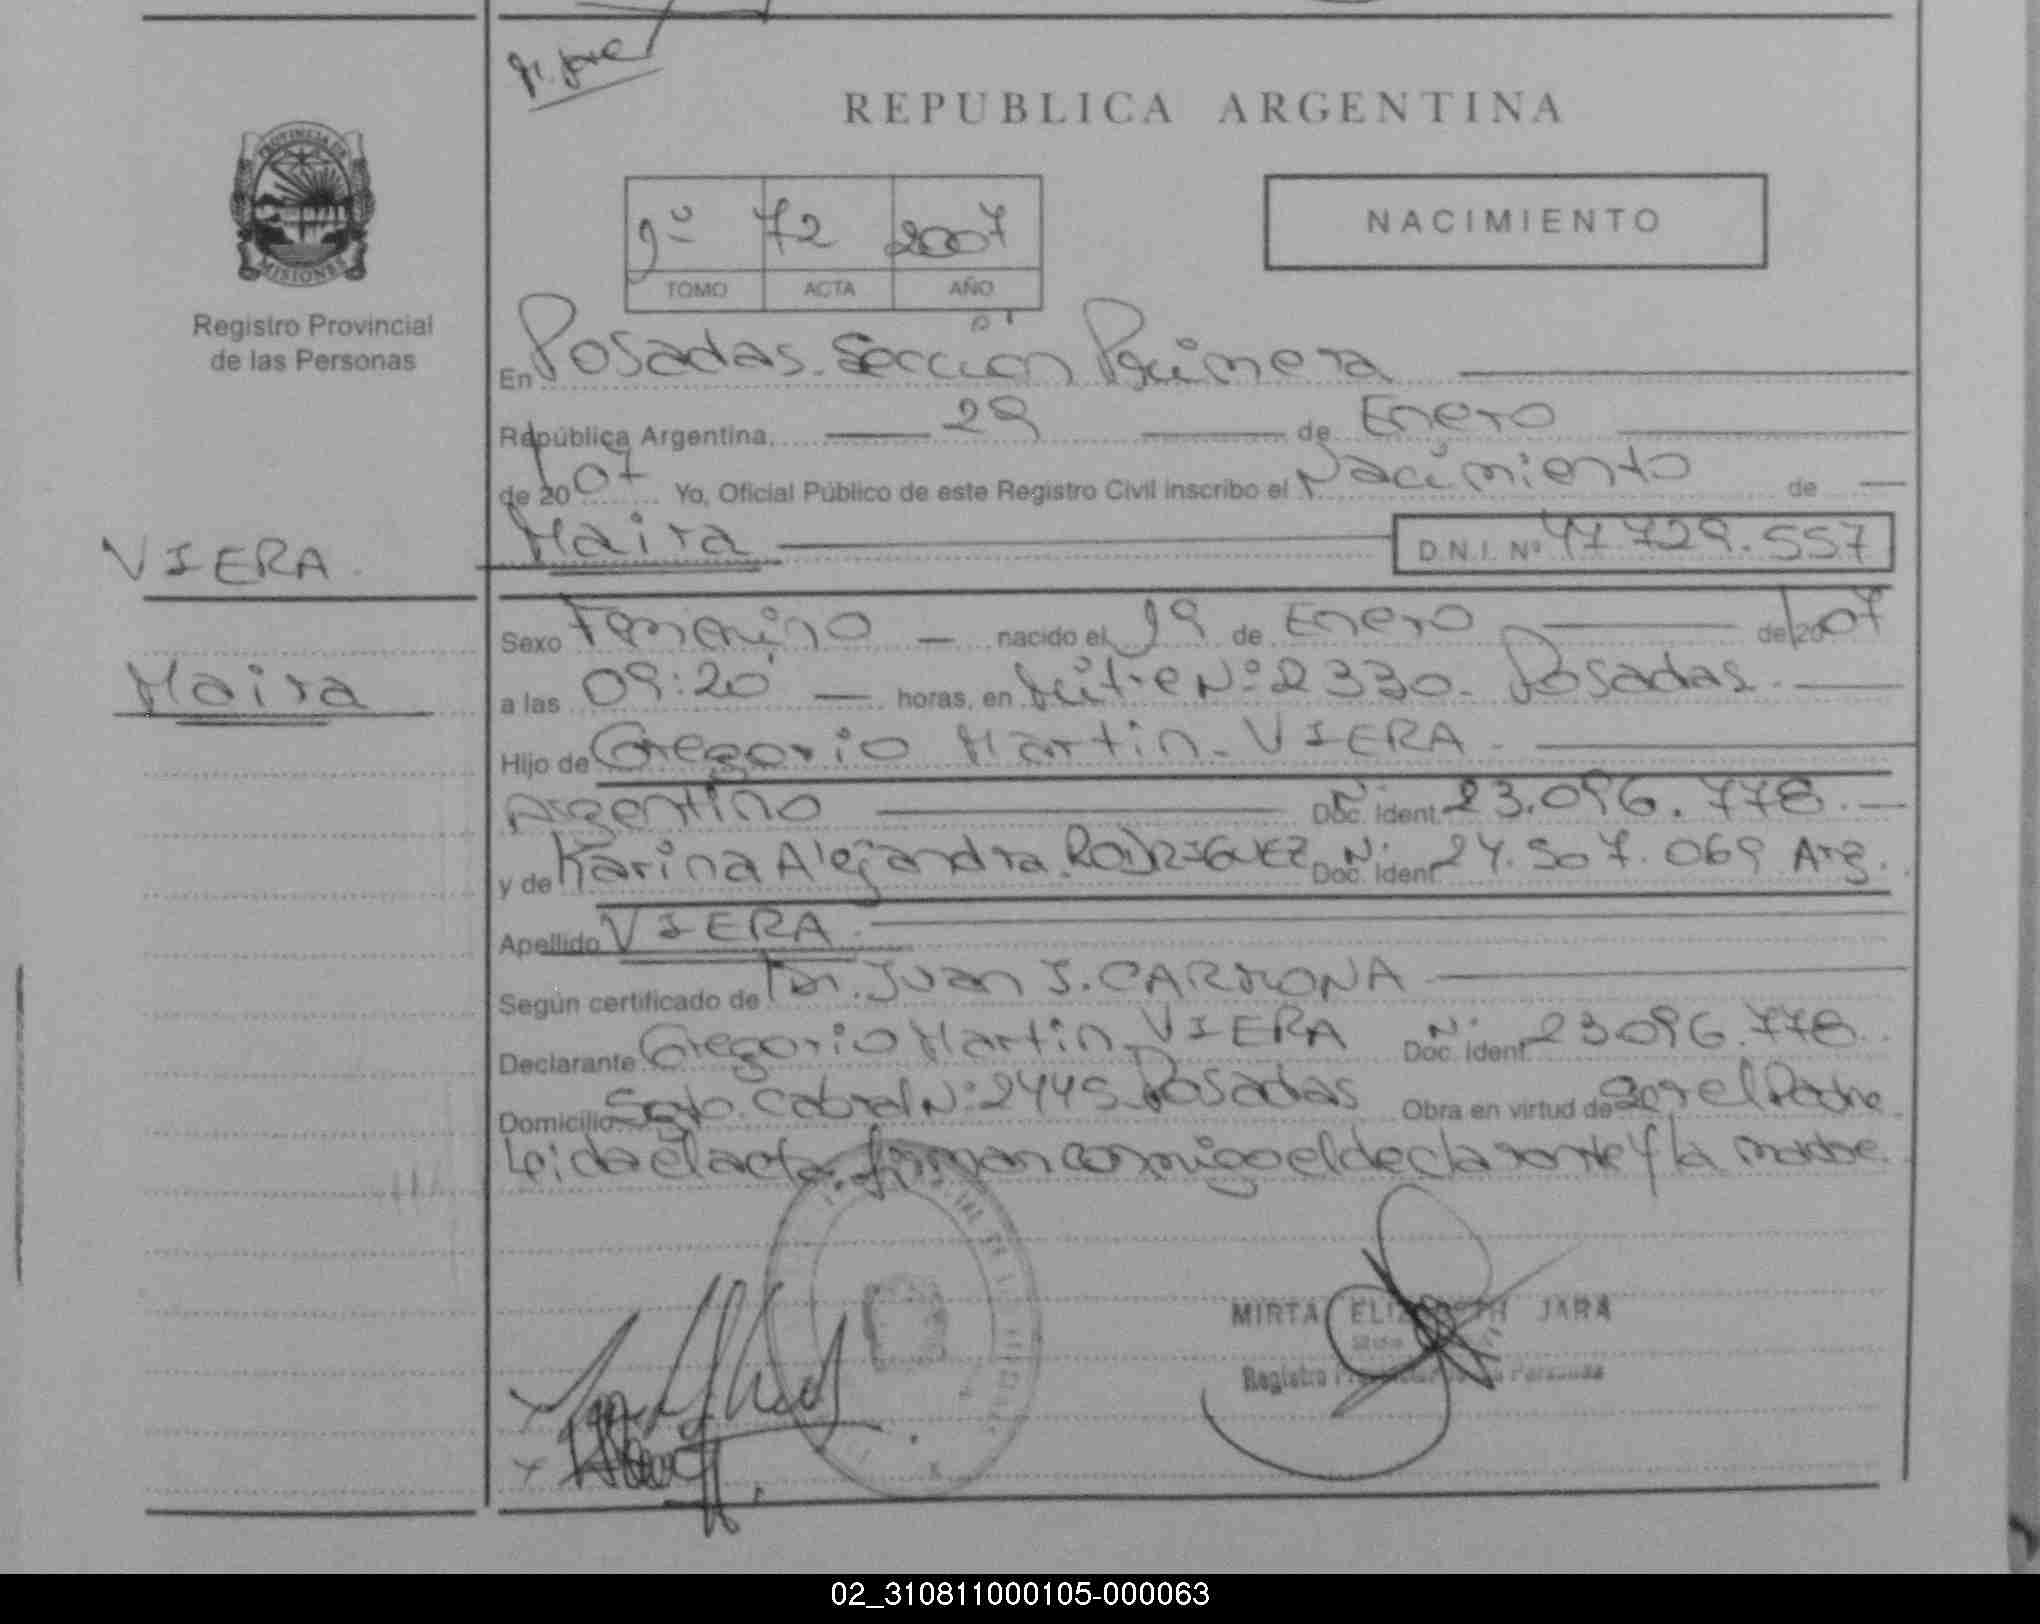 REPUBLICA ARGENTINA
PROVINCIA DE
MISIONES
Registro Provincial
de las Personas
NACIMIENTO
9º 72 2007
TOMO ACTA AÑO
En Posadas. Sección Primera
República Argentina, 29 de Enero
de 2007 Yo, Oficial Público de este Registro Civil inscribo el Nacimiento de
Maira D.N.I. Nº 47.729.557
VIERA
Maira
Sexo Femenino nacido el 19 de Enero de 2007
a las 09:20 horas, en Mitre Nº 2330. Posadas.
Hijo de Gregorio Martin VIERA
Argentino Doc. Ident. 23.096.778.
y de Karina Alejandra RODRIGUEZ Doc. Ident. 24.507.069 Arg.
Apellido VIERA
Según certificado de Dr. Juan J. CARMONA
Declarante Gregorio Martin VIERA Doc. Ident. 23096.778
Domicilio Sgto. Cabral Nº 2445 Posadas Obra en virtud de ser el Padre
Leida el acta. firman conmigo el declarante y la madre
MIRTA ELIZABETH JARA
Registro Provincial de las Personas
02_310811000105-000063